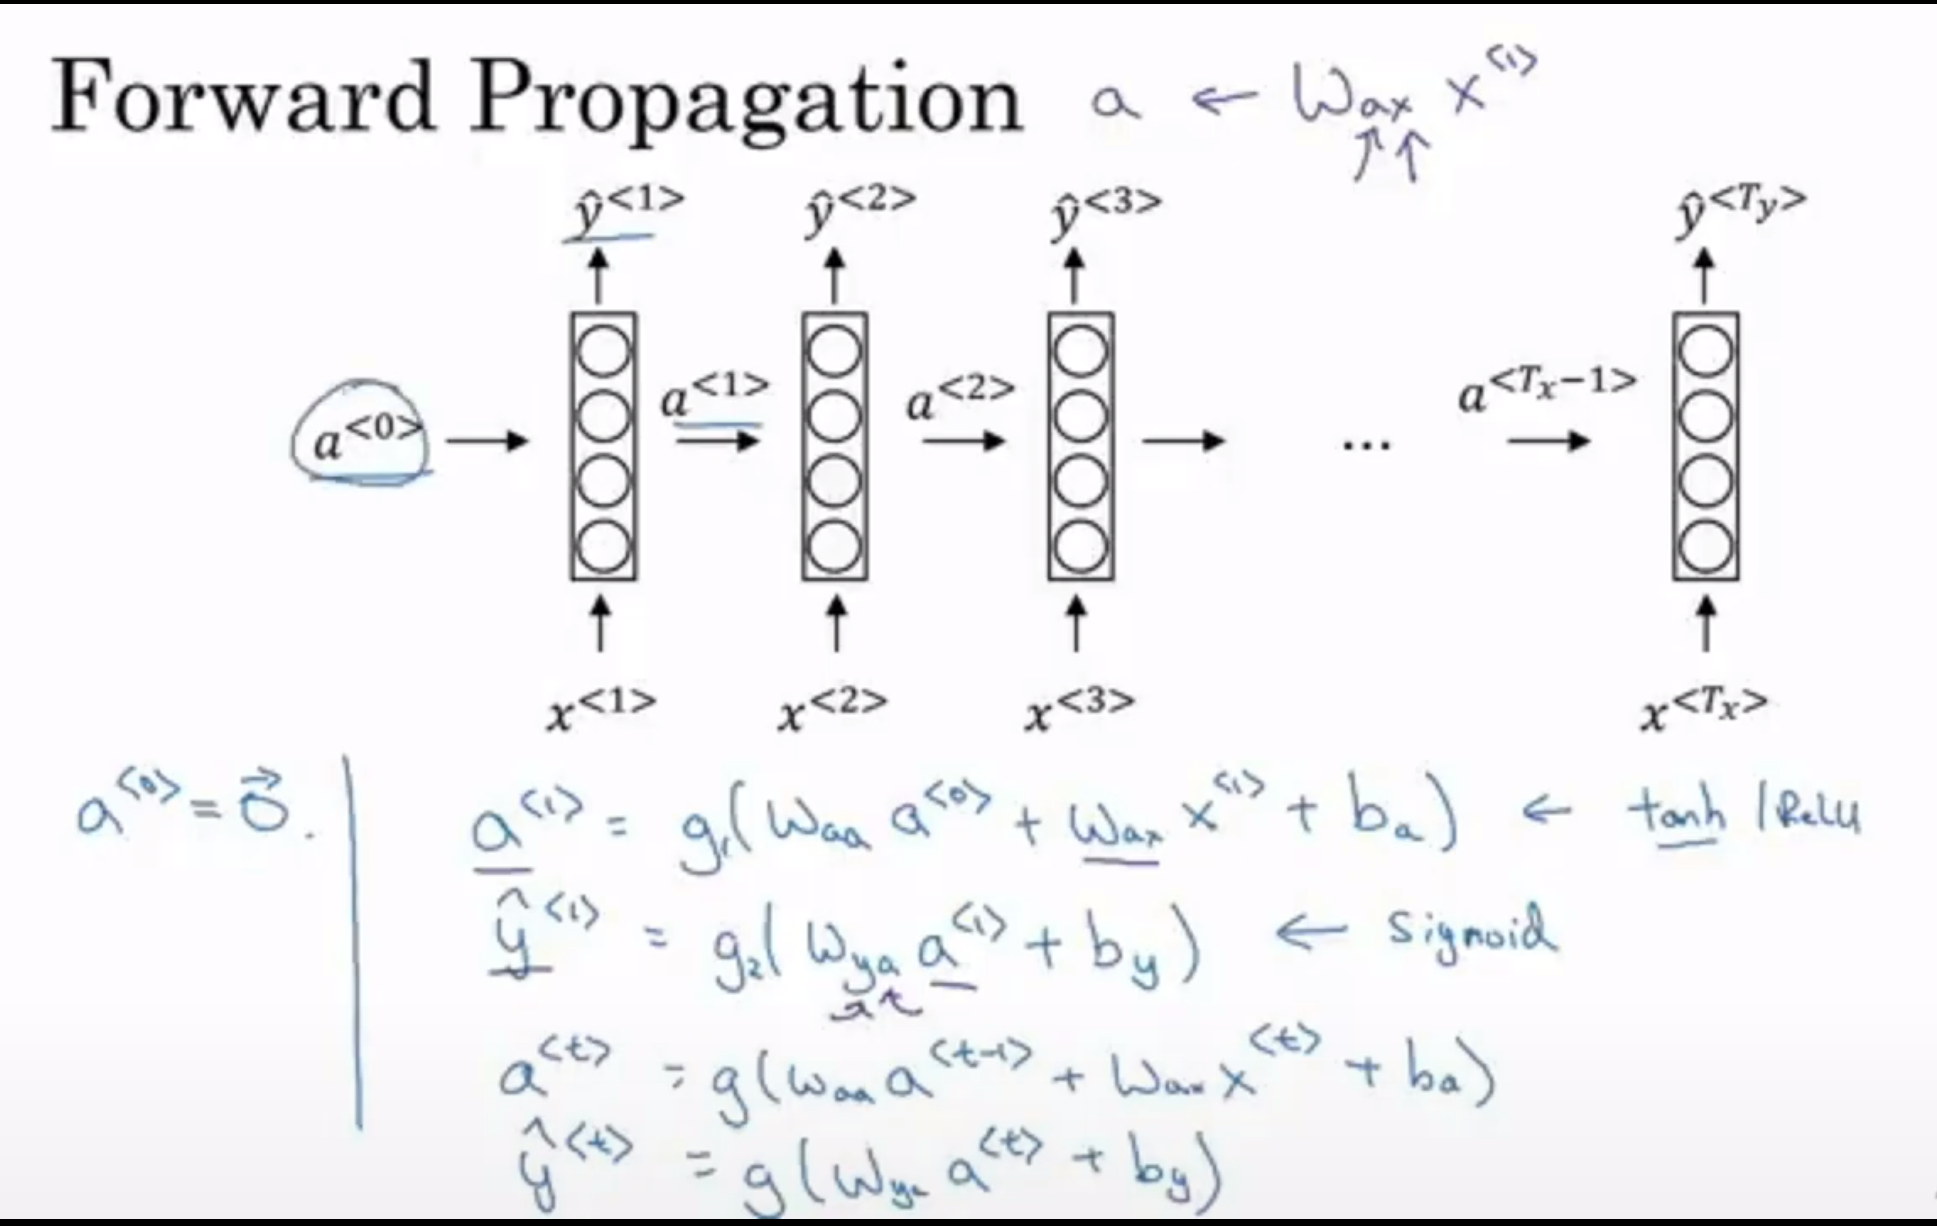 Forward Propagation a ← Wax x<1>
ŷ<1> ŷ<2> ŷ<3> ŷ<Ty>
a<0> a<1> a<2> ... a<Tx−1>
x<1> x<2> x<3> x<Tx>
a<0> = 0⃗.
a<1> = g₁(Waa a<0> + Wax x<1> + ba) ← tanh | Relu
ŷ<1> = g₂(Wya a<1> + by) ← sigmoid
a<t> = g(Waa a<t-1> + Wax x<t> + ba)
ŷ<t> = g(Wya a<t> + by)